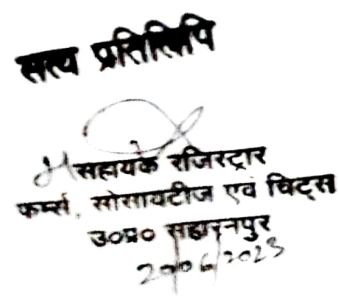 सत्य प्रतिलिपि
सहायक रजिस्ट्रार
फर्म्स, सोसायटीज एवं चिट्स
उ०प्र० सहारनपुर
20/06/2023